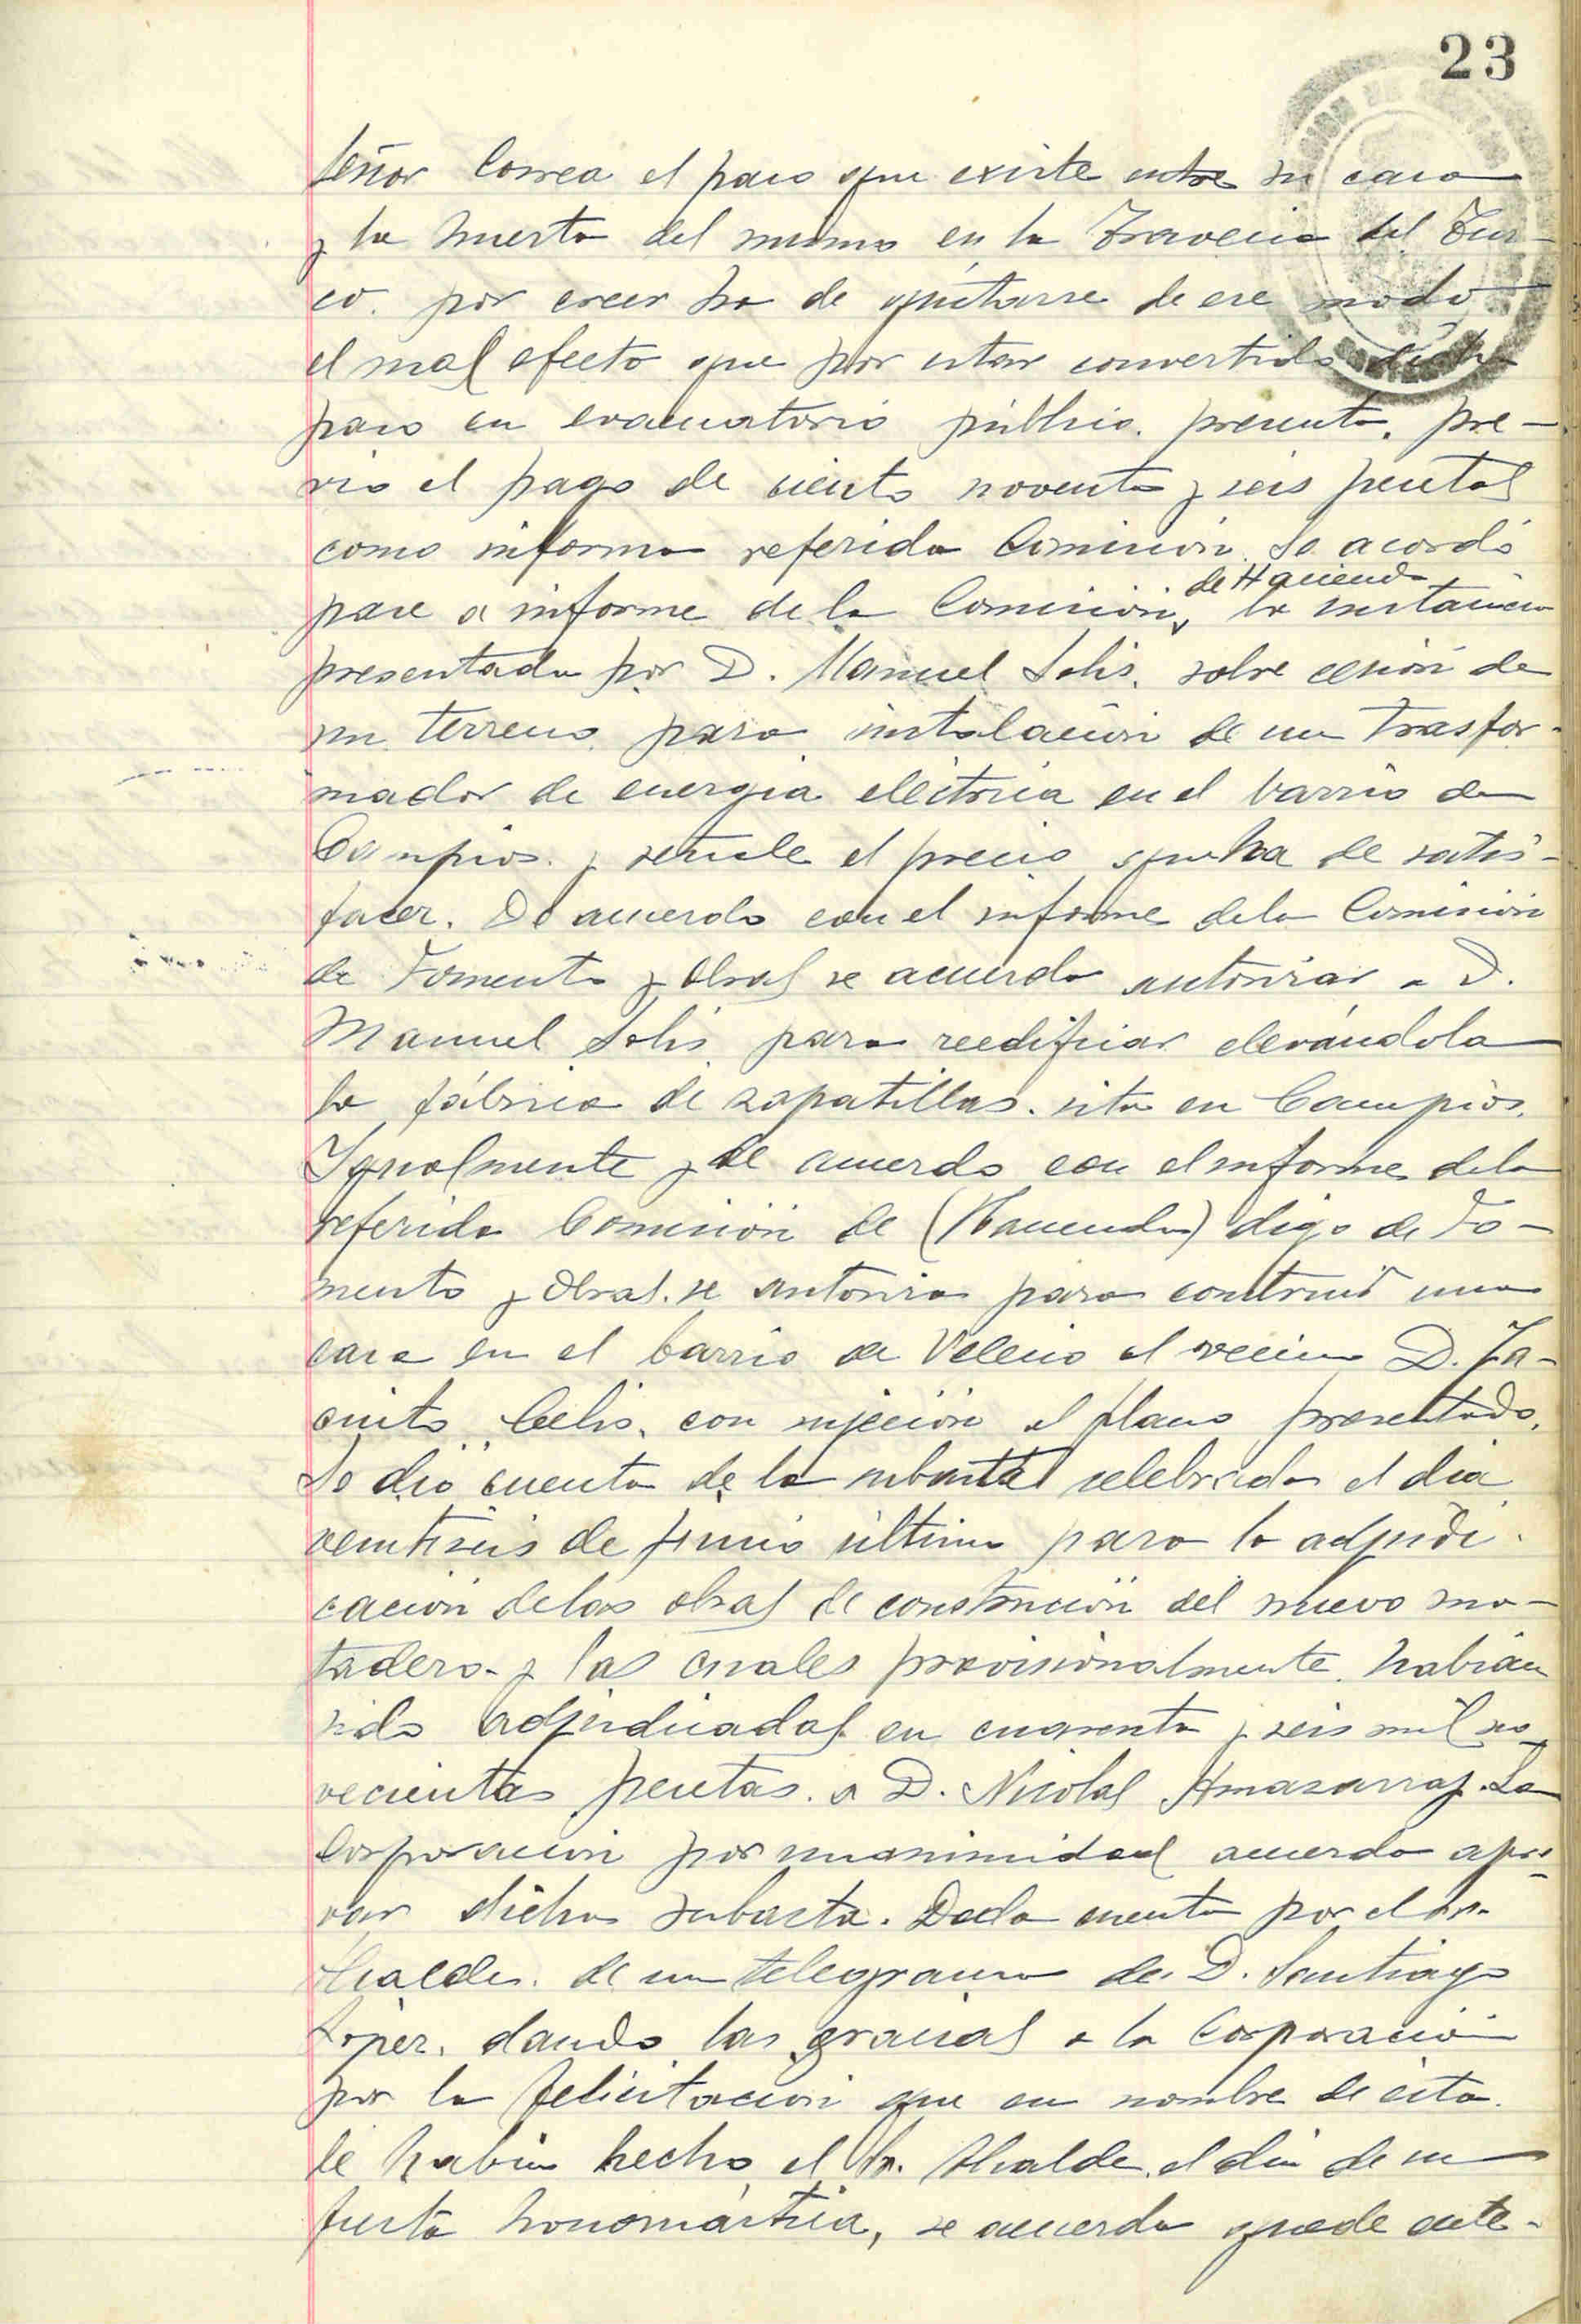 23
Señor Correa el paso que existe entre su casa
y la huerta del mismo en la Travecia del Tur-
co. por creer ha de quitarse de ese modo
el mal efecto que por estar convertido dicho
paso en evacuatorio público. presenta, pre-
vio el pago de ciento noventa y seis pesetas
como informa referida Comisión. Se acordó
pase a informe de la Comisión de Hacienda la instancia
presentada por D. Manuel Solis. sobre cesión de
un terreno para instalación de un trasfor-
mador de energia eléctrica en el barrio de
Campios. y señale el precio que ha de satis-
facer. De acuerdo con el informe de la Comisión
de Fomento y Obras se acuerda autorizar a D.
Manuel Solis para reedificar elevándola
la fábrica de zapatillas. sita en Campios.
Igualmente y de acuerdo con el informe de la
referida Comisión de (Hacienda) digo de Fo-
mento y Obras. se autoriza para construir una
casa en el barrio de Velecio al vecino D. Ja-
cinto Celis, con sujeción al plano presentado.
Se dió cuenta de la subasta celebrada el dia
veintiseis de Junio último para la adjudi-
cación de las obras de construcción del nuevo ma-
tadero. y las cuales provisionalmente. habian
sido adjudicadas en cuarenta y seis mil no-
vecientas pesetas. a D. Nicolas Amasarray. La
Corporación por unanimidad acuerda apro-
var dicha subasta. Dada cuenta por el Sr.
Alcalde. de un telegrama de D. Santiago
López. dando las gracias a la Corporación
por la felicitación que en nombre de esta
le habia hecho el Sr. Alcalde. el dia de su
fiesta honomástica, se acuerda quede ente-